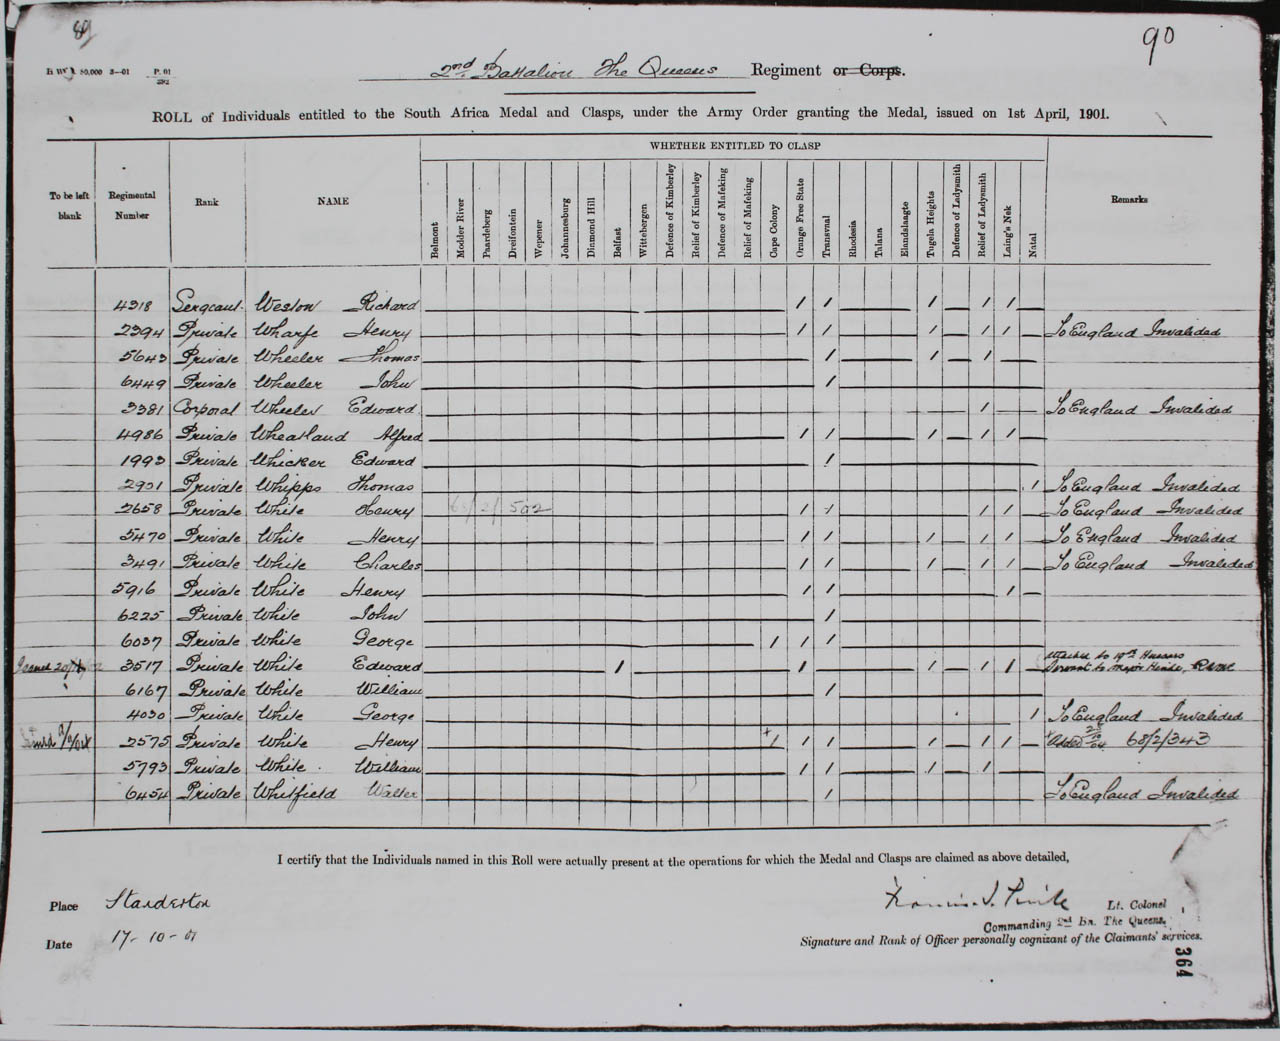 89
90
B W 1. 50,000 3—01 P. 01 / 282
2nd Battalion The Queens Regiment or Corps.
ROLL of Individuals entitled to the South Africa Medal and Clasps, under the Army Order granting the Medal, issued on 1st April, 1901.
WHETHER ENTITLED TO CLASP
To be left blank Regimental Number Rank NAME Belmont Modder River Paardeberg Dreifontein Wepener Johannesburg Diamond Hill Belfast Wittebergen Defence of Kimberley Relief of Kimberley Defence of Mafeking Relief of Mafeking Cape Colony Orange Free State Transvaal Rhodesia Talana Elandslaagte Tugela Heights Defence of Ladysmith Relief of Ladysmith Laing's Nek Natal Remarks
4318 Sergeant Weston Richard / / / / /
2394 Private Wharfe Henry / / / / / To England Invalided
5643 Private Wheeler Thomas / / /
6449 Private Wheeler John /
3381 Corporal Wheeler Edward / To England Invalided
4986 Private Wheatland Alfred / / / / /
1993 Private Whicker Edward /
2931 Private Whipps Thomas / To England Invalided
2658 Private White Henry 68/2/502 / / / / To England Invalided
5470 Private White Henry / / / / / To England Invalided
3491 Private White Charles / / / / / To England Invalided
5916 Private White Henry / / /
6225 Private White John /
6037 Private White George / / /
Issued 3517 Private White Edward / / / / / attached to 19th Hussars
Servant to Major
6167 Private White William /
4030 Private White George / To England Invalided
2575 Private White Henry + / / / / / / + Added 68/2/343
5793 Private White William / / / /
6454 Private Whitfield Walter / To England Invalided
I certify that the Individuals named in this Roll were actually present at the operations for which the Medal and Clasps are claimed as above detailed,
Place Standerton
Date 17-10-01
Lt. Colonel
Commanding 2nd Bn. The Queens.
Signature and Rank of Officer personally cognizant of the Claimants' services.
364